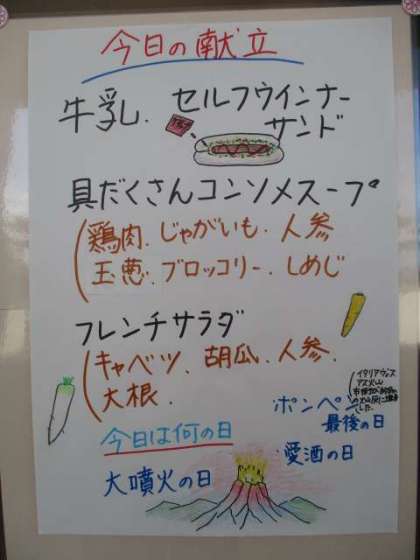 今日の献立
牛乳. セルフウインナー
サンド
具だくさんコンソメスープ
(鶏肉. じゃがいも. 人参
玉葱. ブロッコリー. しめじ
フレンチサラダ
(キャベツ. 胡瓜. 人参.
大根.
今日は何の日
ポンペイ
最後の日
愛酒の日
大噴火の日
イタリアヴェス